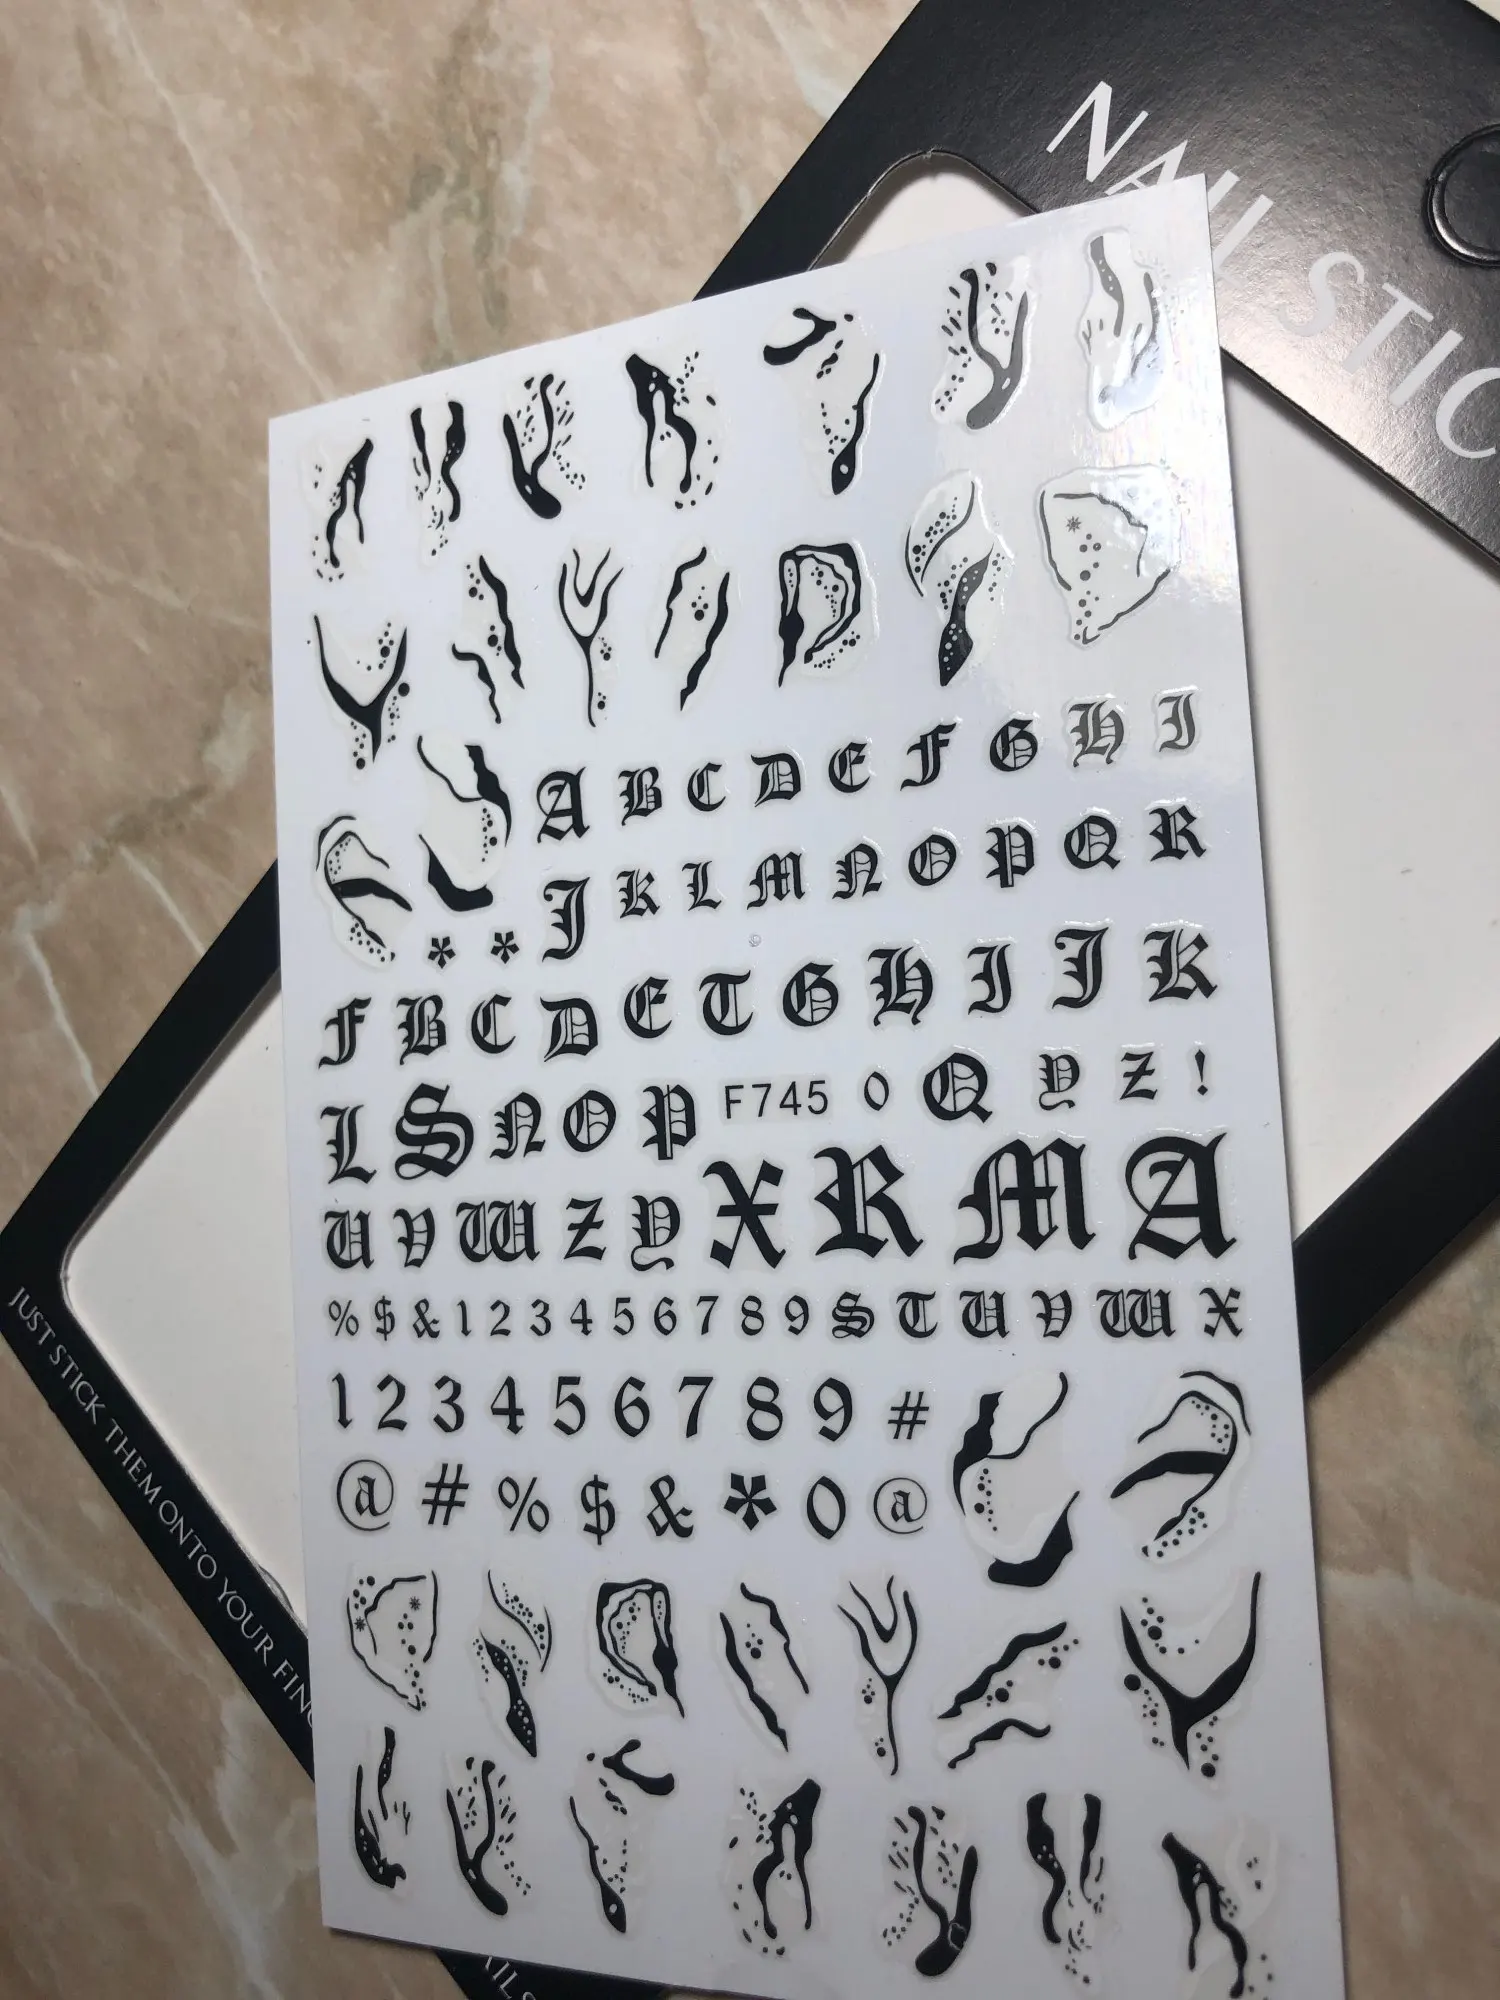 NAIL STIC
A B C D E F G H I
J K L M N O P Q R
* *
F B C D E T G H I J K
L S N O P F745 0 Q Y Z !
U V W Z Y X R M A
% $ & 1 2 3 4 5 6 7 8 9 S T U V W X
1 2 3 4 5 6 7 8 9 #
@ # % $ & * 0 @
JUST STICK THEM ONTO YOUR FING
AILS